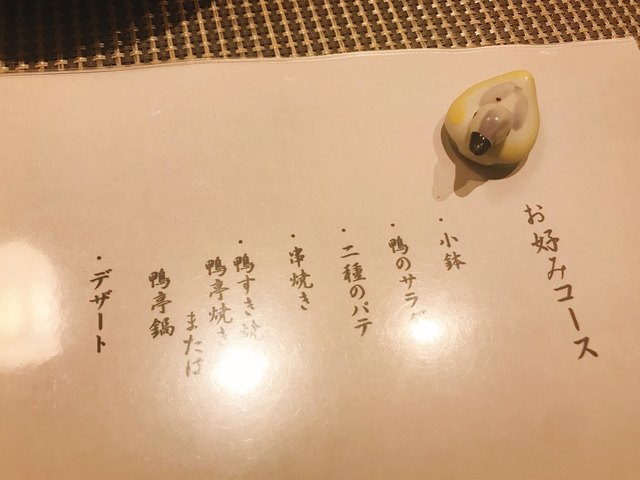 お好みコース
・小鉢
・鴨のサラダ
・二種のパテ
・串焼き
・鴨すき鍋
鴨亭焼き
または
鴨亭鍋
・デザート